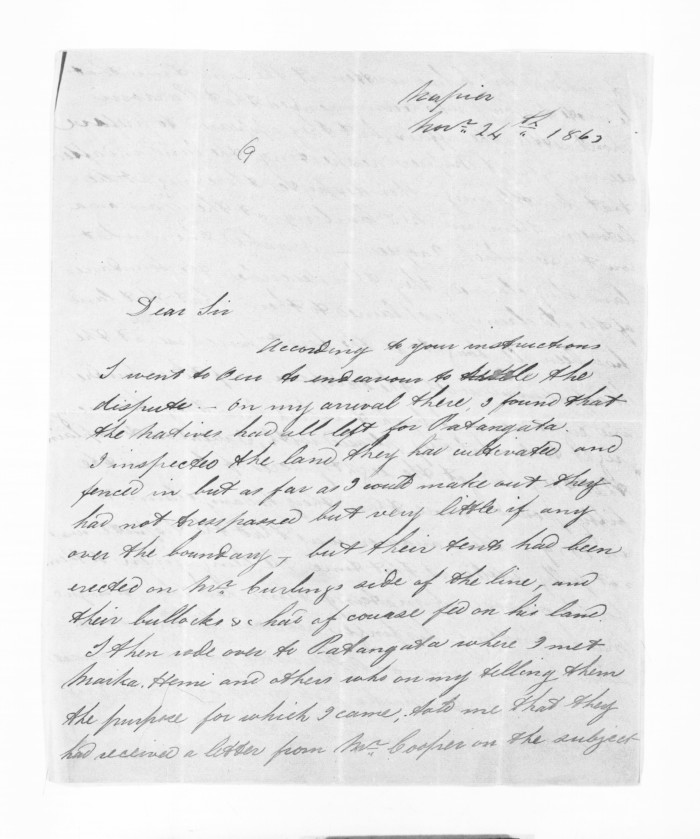 Napier
Novr. 24th 186
6
Dear Sir
According to your instructions
I went to to endeavour to settle the
dispute – on my arrival there, I found that
the Natives had all left for Patangata.
I inspected the land they had cultivated and
fenced in but as far as I could make out they
had not tresspassed but very little if any
over the boundary, – but their tents had been
erected on Mr. Curlings side of the line, and
their bullocks &c had of course fed on his land.
I then rode over to Patangata where I met
Maika, Hemi and others who on my telling them
the purpose for which I came, told me that they
had received a letter from Mr. Cooper on the subject